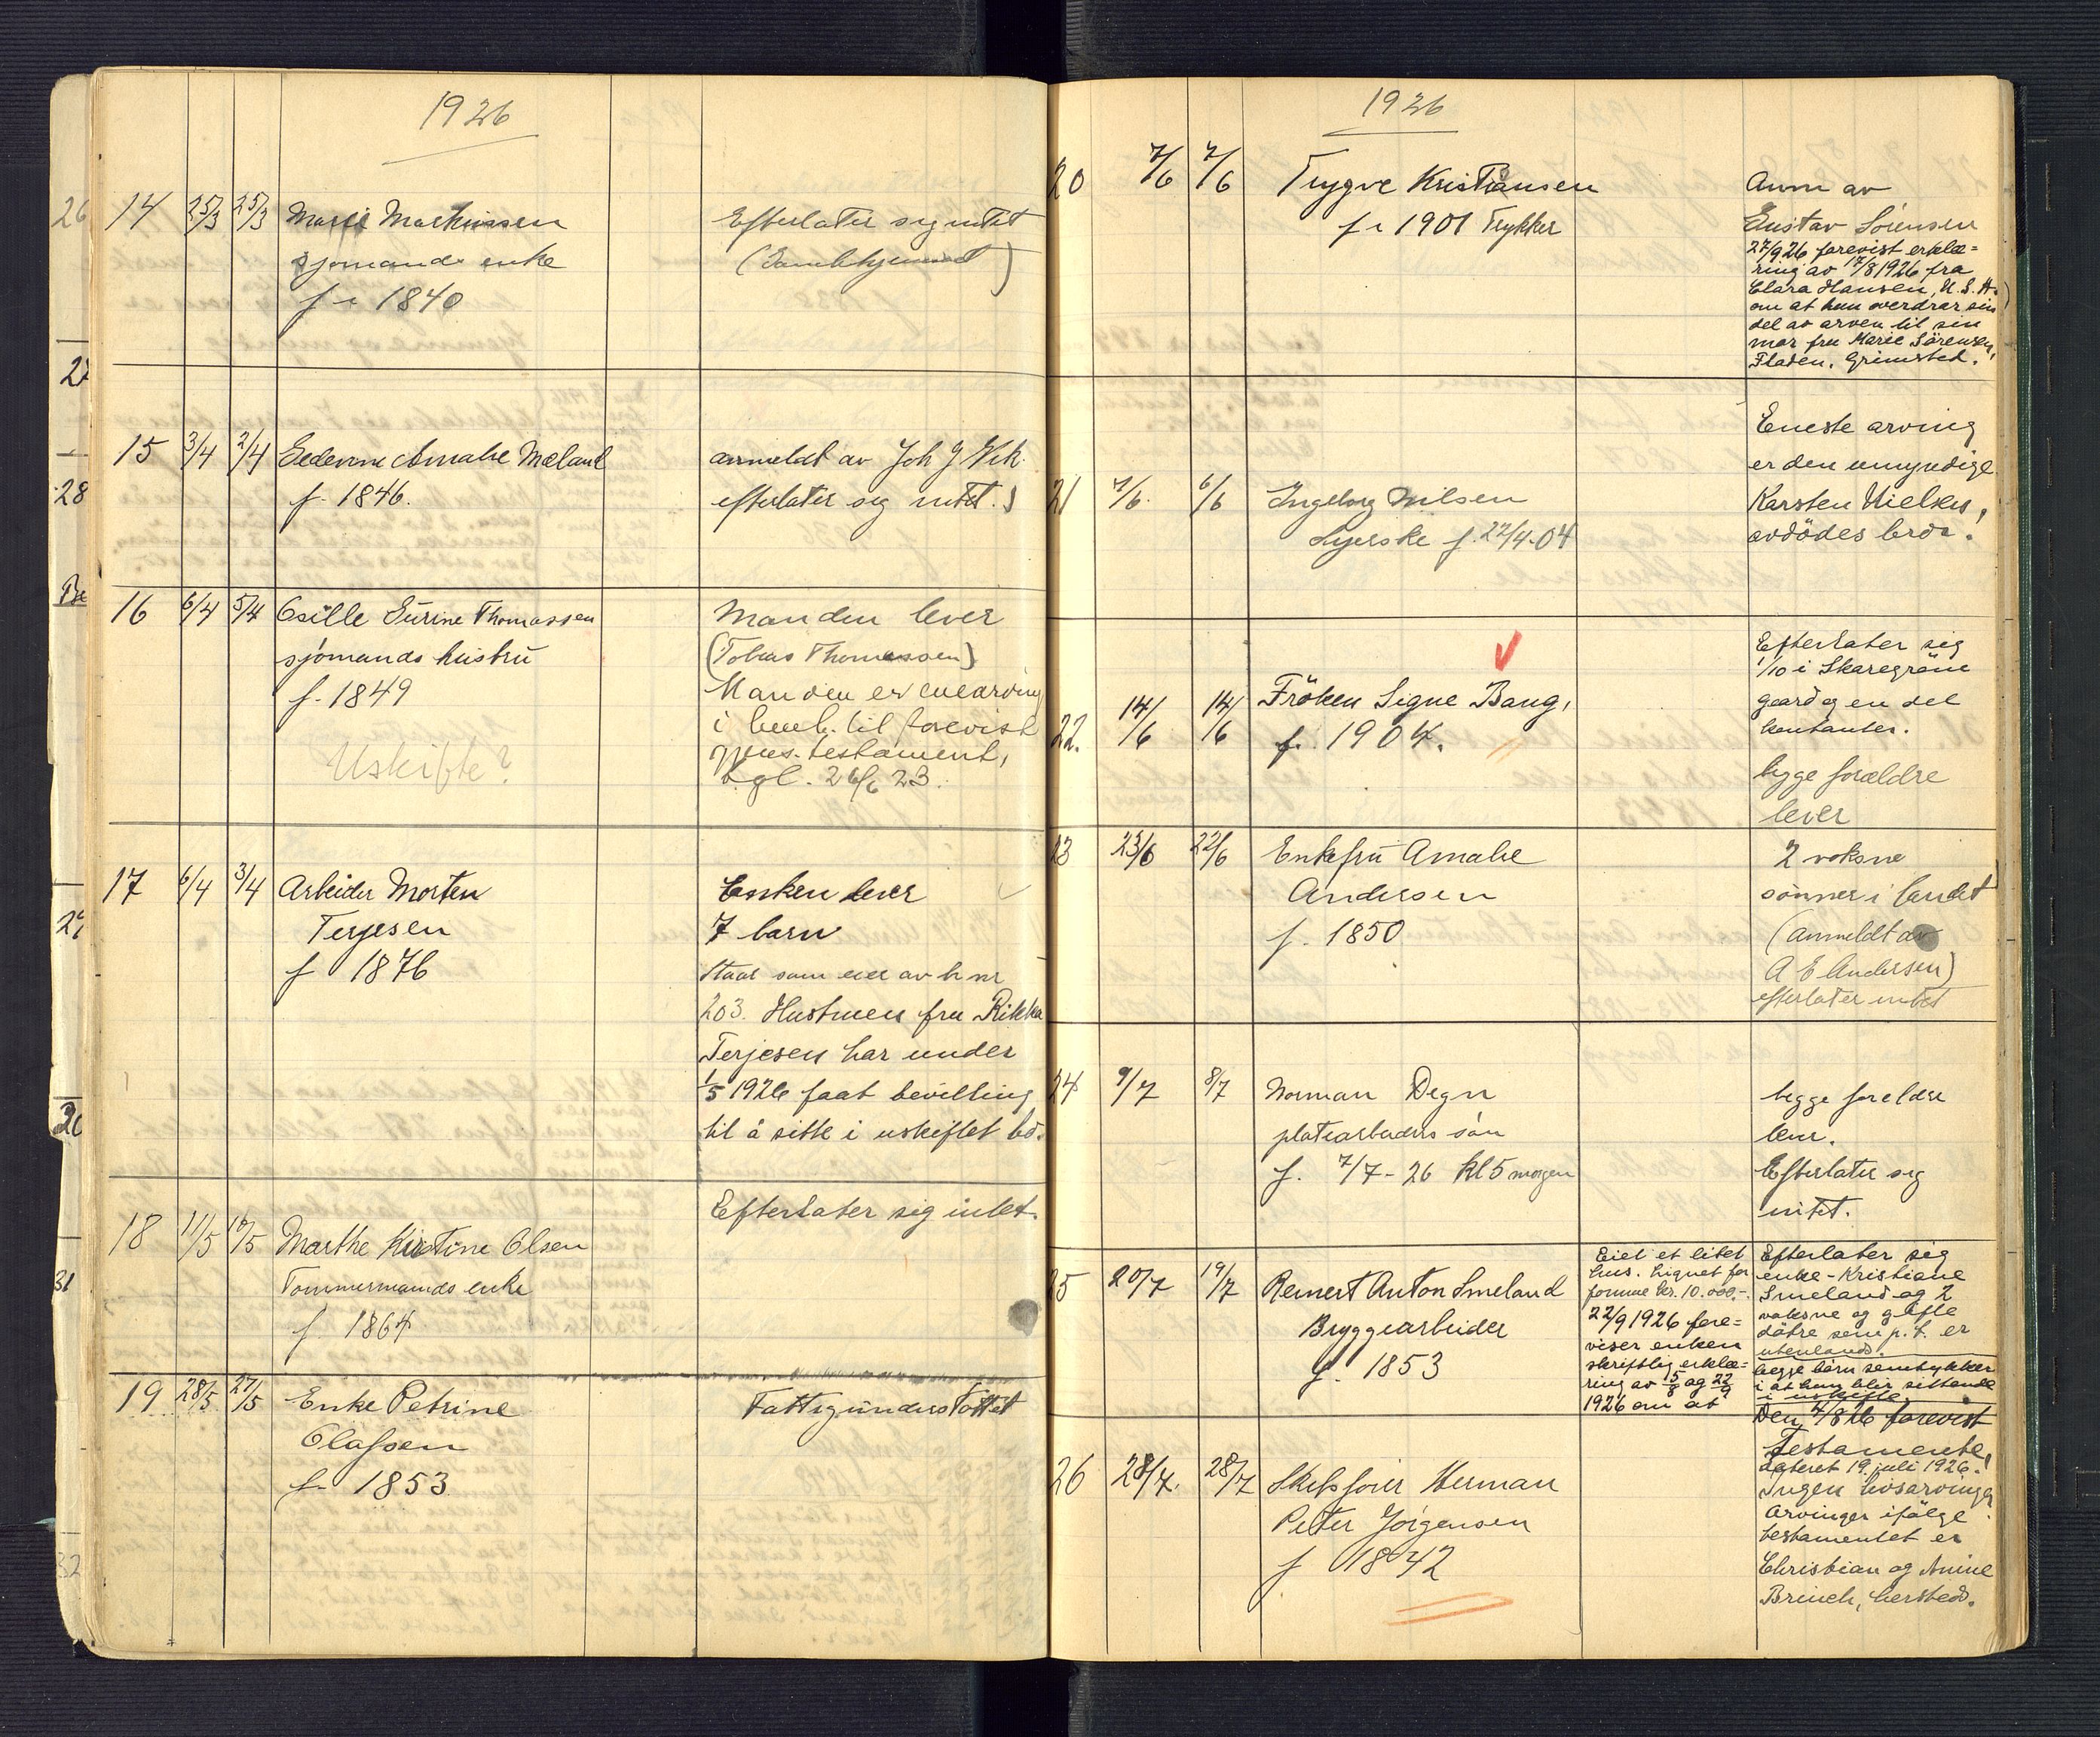 1926
14 25/3 25/3 Marie Markussen Efterlater sig intet
sjømands enke
f. 1840
15 3/4 2/4 Gedevine Amalie Mæland anmeldt av Joh J Vik
f. 1846. efterlater sig intet.
16 6/4 5/4 Osille Surine Thomassen Manden lever
sjømands hustru (Tobias Thomassen)
f. 1849 Manden er enearving
i henh. til forevist
Uskifte? gjens. testament,
kgl. 26/6 23.
17 6/4 3/4 Arbeider Morten Enken lever
Terjesen 7 barn
f 1876 Staar som eier av h nr
203. Hustruen fru Rikka
Terjesen har under
1/5 1926 faat bevilling
til å sitte i uskiftet bo.
Efterlater sig intet.
18 11/5 10/5 Marthe Kirstine Olsen
Tømmermands enke
f. 1864
19 28/5 27/5 Enke Petrine Fattigunderstøttet
Olafsen
f. 1853
1926
20 7/6 7/6 Trygve Kristiansen Anm av
f. 1901 Trykker Gustav Sørensen
27/9 26 forevist erklæ=
ring av 17/8 1926 fra
Clara Hansen, U.S.A.
om at hun overdrar sin
del av arven til sin
mor fru Marie Sörensen,
Fladen, Grimstad.
Eneste arving
er den umyndige
21 7/6. 6/6 Ingeborg Nilsen Karsten Nielsen,
Syerske f. 22/4-04 avdödes bror.
Efterlater sig
1/10 i Skaregröm
22. 14/6 14/6 Fröken Signe Bang, gaard og en del
f. 1904. kontanter.
begge forældre
lever
23 23/6 22/6 Enkefru Amalie 2 voksne
Andersen sønner i landet
f. 1850 (anmeldt av
A E Andersen)
efterlater intet
24 9/7 8/7 Norman Degn begge foreldre
platearbeiders søn lever.
f. 7/7-26 kl 5 morgen Efterlater sig
intet.
25 20/7 19/7 Reinert Anton Smeland
Bryggearbeider
f. 1853
Eiet et litet
hus. Lignet for
formue kr. 10.000,-.
22/9 1926 fore=
viser enken
skriftlig erklæ=
ring av 15/8 og 22/9
1926 om at
Efterlater sig
enke - Kristiane
Smeland og 2
voksne og gifte
døtre som p.t. er
utenlands.
begge barn samtykker
i at hun blir sittende
i uskifte.
26 28/7. 28/7 Skibsfører Herman
Peter Jørgensen
f 1842
Den 4/8 26 forevist
Testamente,
dateret 19. juli 1926.
Ingen livsarvinger
Arvinger ifölge
testamentet er
Christian og Anine
Brinch, hersteds.